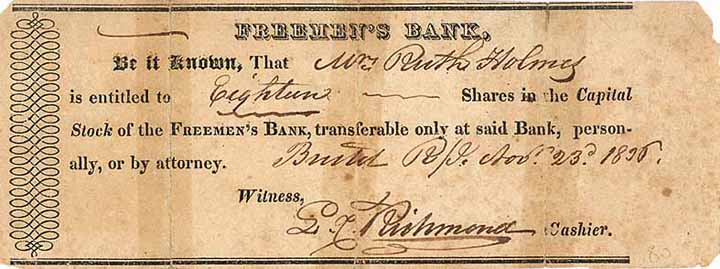 FREEMEN'S BANK,
Be it Known, That Mrs Ruth Holmes
is entitled to Eighteen Shares in the Capital
Stock of the FREEMEN'S BANK, transferable only at said Bank, person-
ally, or by attorney. Bristol R I. Novr. 23d. 1836.
Witness,
Richmond Cashier.